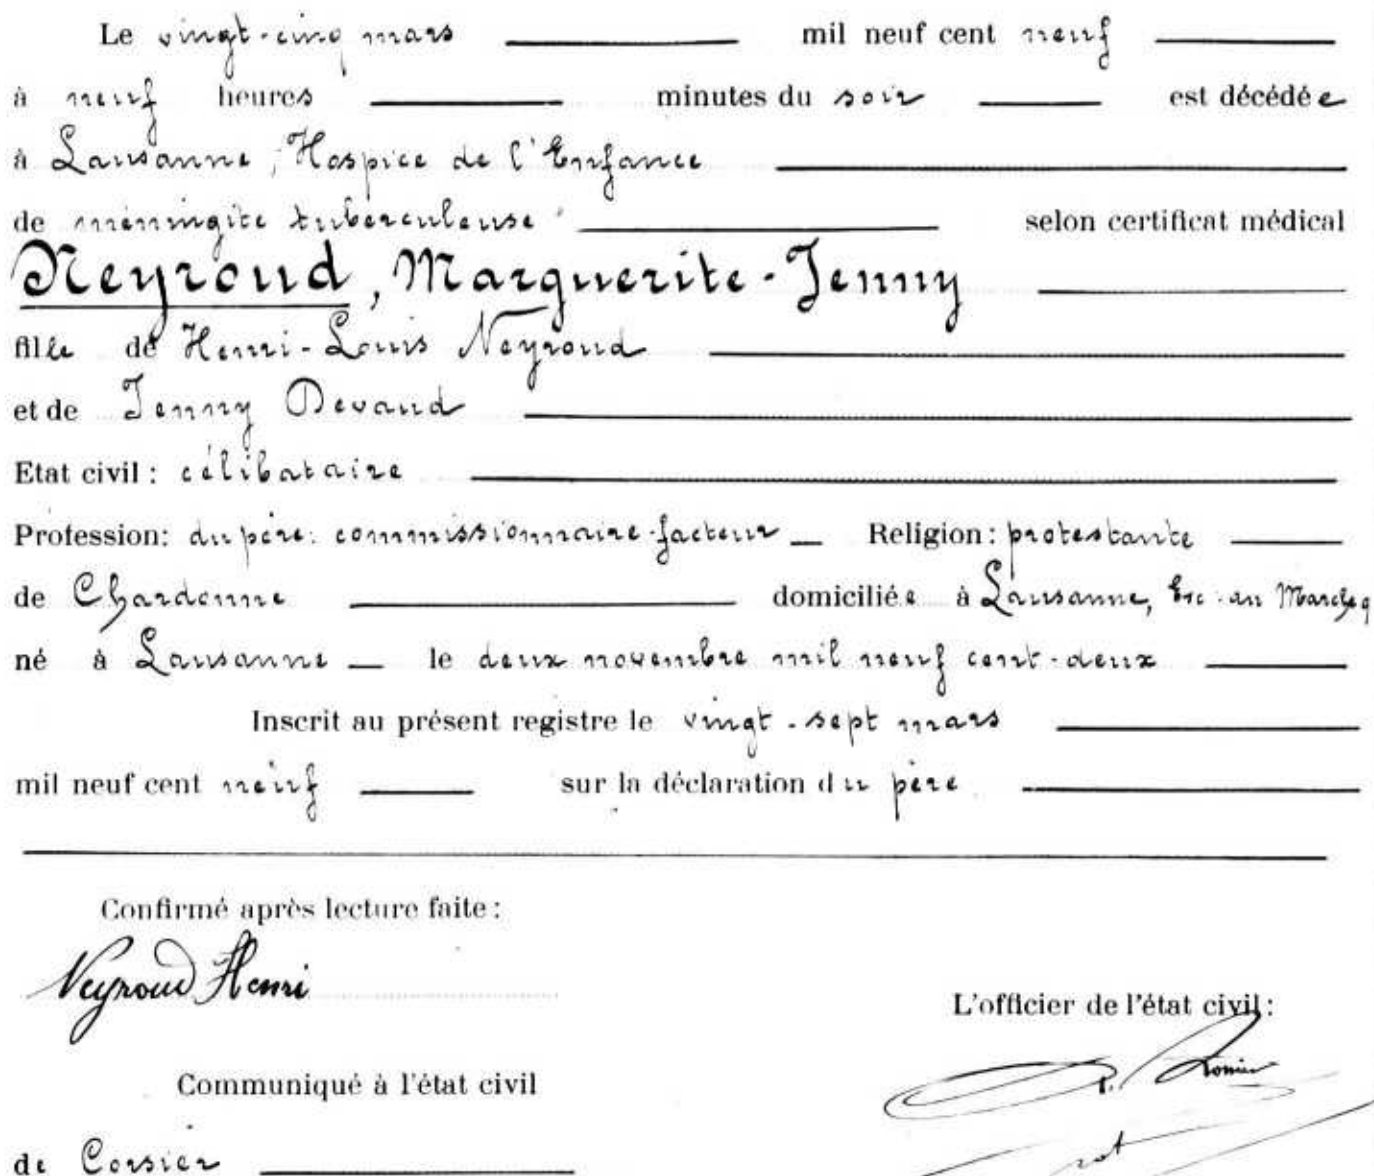 Le vingt-cinq mars mil neuf cent neuf
à neuf heures minutes du soir est décédée
à Lausanne, Hospice de l'Enfance
de méningite tuberculeuse selon certificat médical
Neyroud, Marguerite-Jenny
fille de Henri-Louis Neyroud
et de Jenny Devaud
Etat civil : célibataire
Profession: du père: commissionnaire-facteur Religion: protestante
de Chardonne domiciliée à Lausanne, au
né à Lausanne le deux novembre mil neuf cent-deux
Inscrit au présent registre le vingt-sept mars
mil neuf cent neuf sur la déclaration du père
Confirmé après lecture faite :
Neyroud Henri
L'officier de l'état civil :
Communiqué à l'état civil
de Corsier